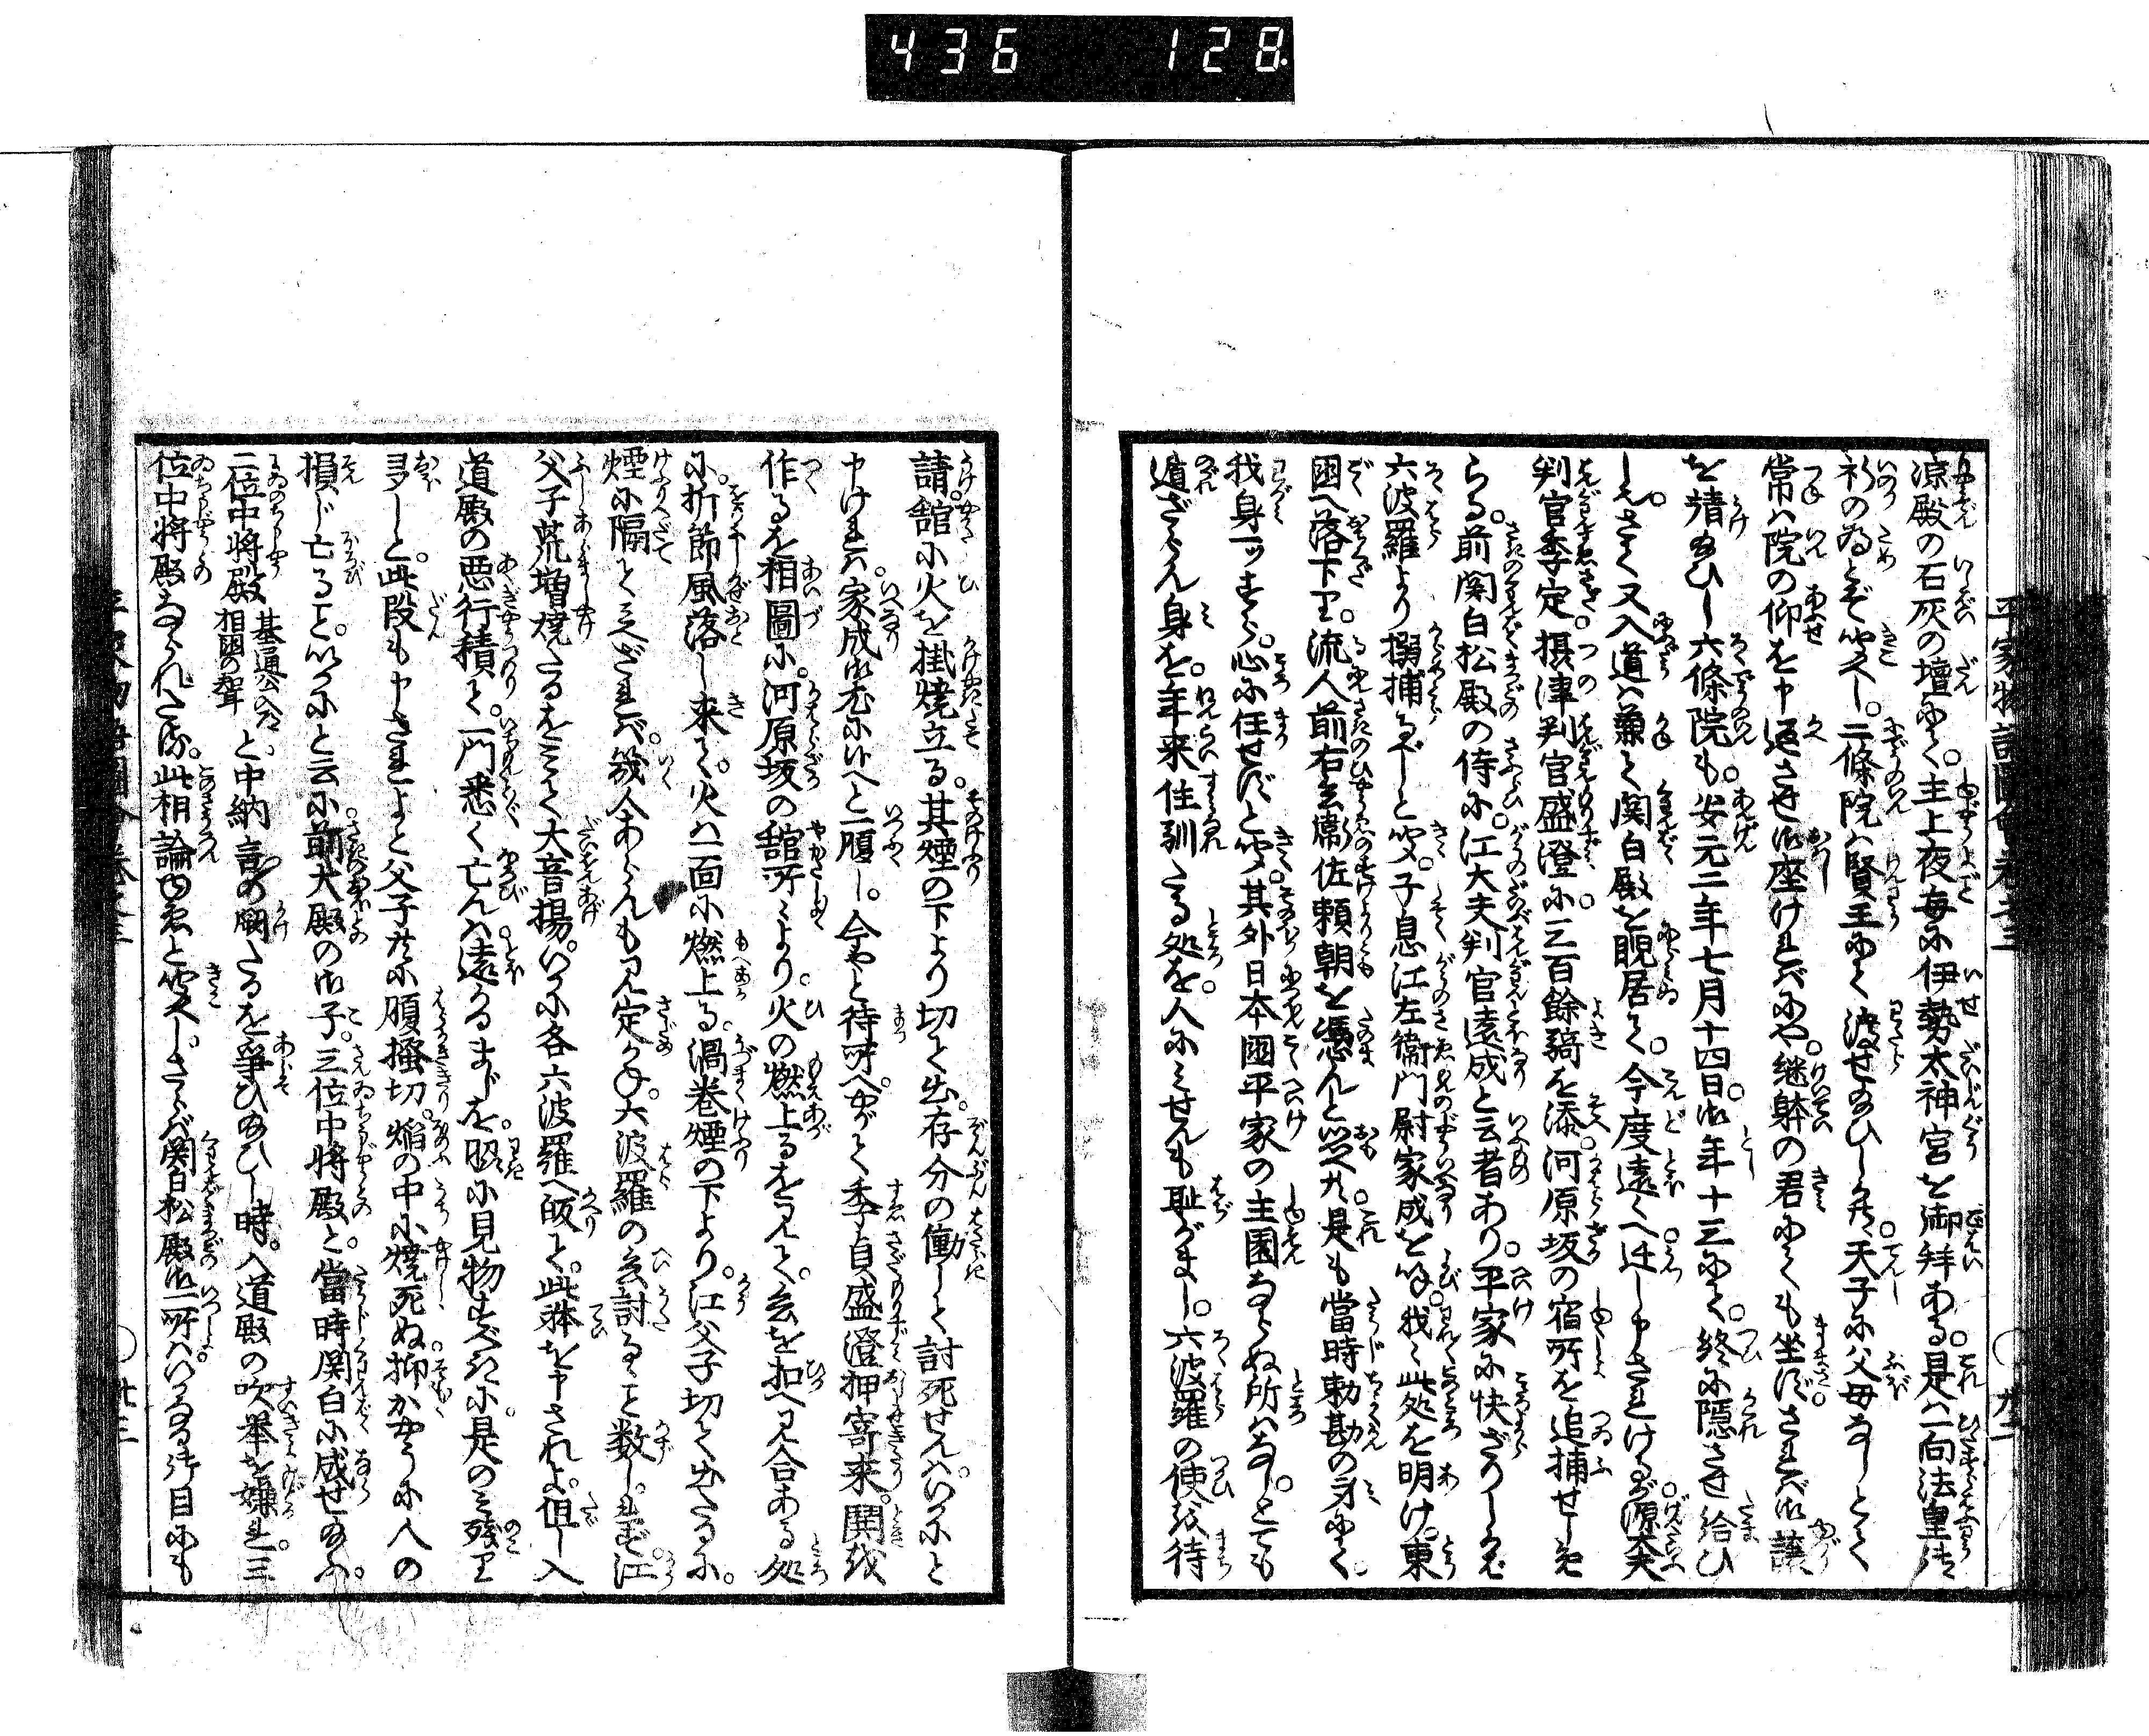 436 128
平家物語圖會卷之三 廿二
凉殿の石灰の壇にて。主上夜毎に伊勢太神宮を御拝ある。是は一向法皇の御
祈の為とぞ聞へし。二條院は賢王にて渡せ給ひしかども。天子に父母なしとて
常は院の仰を申返させ御座ければにや。継躰の君にても坐ずされば御譲
を請給ひし六條院も。安元二年七月十四日。御年十三にて。終に隠させ給ひ
しさて又入道は兼て関白殿を睨居て。今度遠くへ迁し申されけるが。源大夫
判官季定。摂津判官盛澄に三百餘騎を添。河原坂の宿所を追捕せしめ
らる。前関白松殿の侍に。江大夫判官遠成と云者あり。平家に快ざりしかば
六波羅より搦捕べしと聞。子息江左衞門尉家成を呼。我々此処を明け。東
国へ落下り。流人前右兵衛佐頼朝を憑んと思へ共。是も當時勅勘の身にて。
我身一ッすら。心に任せずと聞。其外日本国平家の主園ならぬ所はなし。とても
遁ざらん身を。年来住馴たる処を。人にみせんも恥がまし。六波羅の使を待
請。舘に火を掛焼立る。其煙の下より切て出。存分の働して討死せんはいかにと
申ければ。家成御尤にいへと一腹し。今やと待所へ。やがて季貞盛澄押寄来。鬨を
作るを相圖に。河原坂の舘所々より。火の燃上るを見て。兵を扣へ見合ある処
に。折節風落し来て。火は一面に燃上る。渦巻煙の下より。江父子切て出たるに。
煙に隔て見ざれば。幾人あらんも見定かね。六波羅の兵討るゝこと数しれず。江
父子荒増焼たるをみて大音揚。いかに各六波羅へ皈て。此躰を申されよ。但し入
道殿の悪行積て。一門悉く亡んは遠かるまじを。脇に見物すべきに。是のミ残り
多しと。此段も申されよと父子共に腹掻切。焔の中に焼死ぬ。抑かやうに人の
損じ亡ること。いかにと云に。前大殿の御子。三位中将殿と。當時関白に成せ給ふ。
二位中将殿 基通公入道相国の聟 と。中納言の闕たるを爭ひ給ひし時。入道殿の吹挙を嫌れ。三
位中将殿ならせられたる。此相論ゆゑと聞へし。さらば関白松殿御一所はいかなる御目にも
廿三